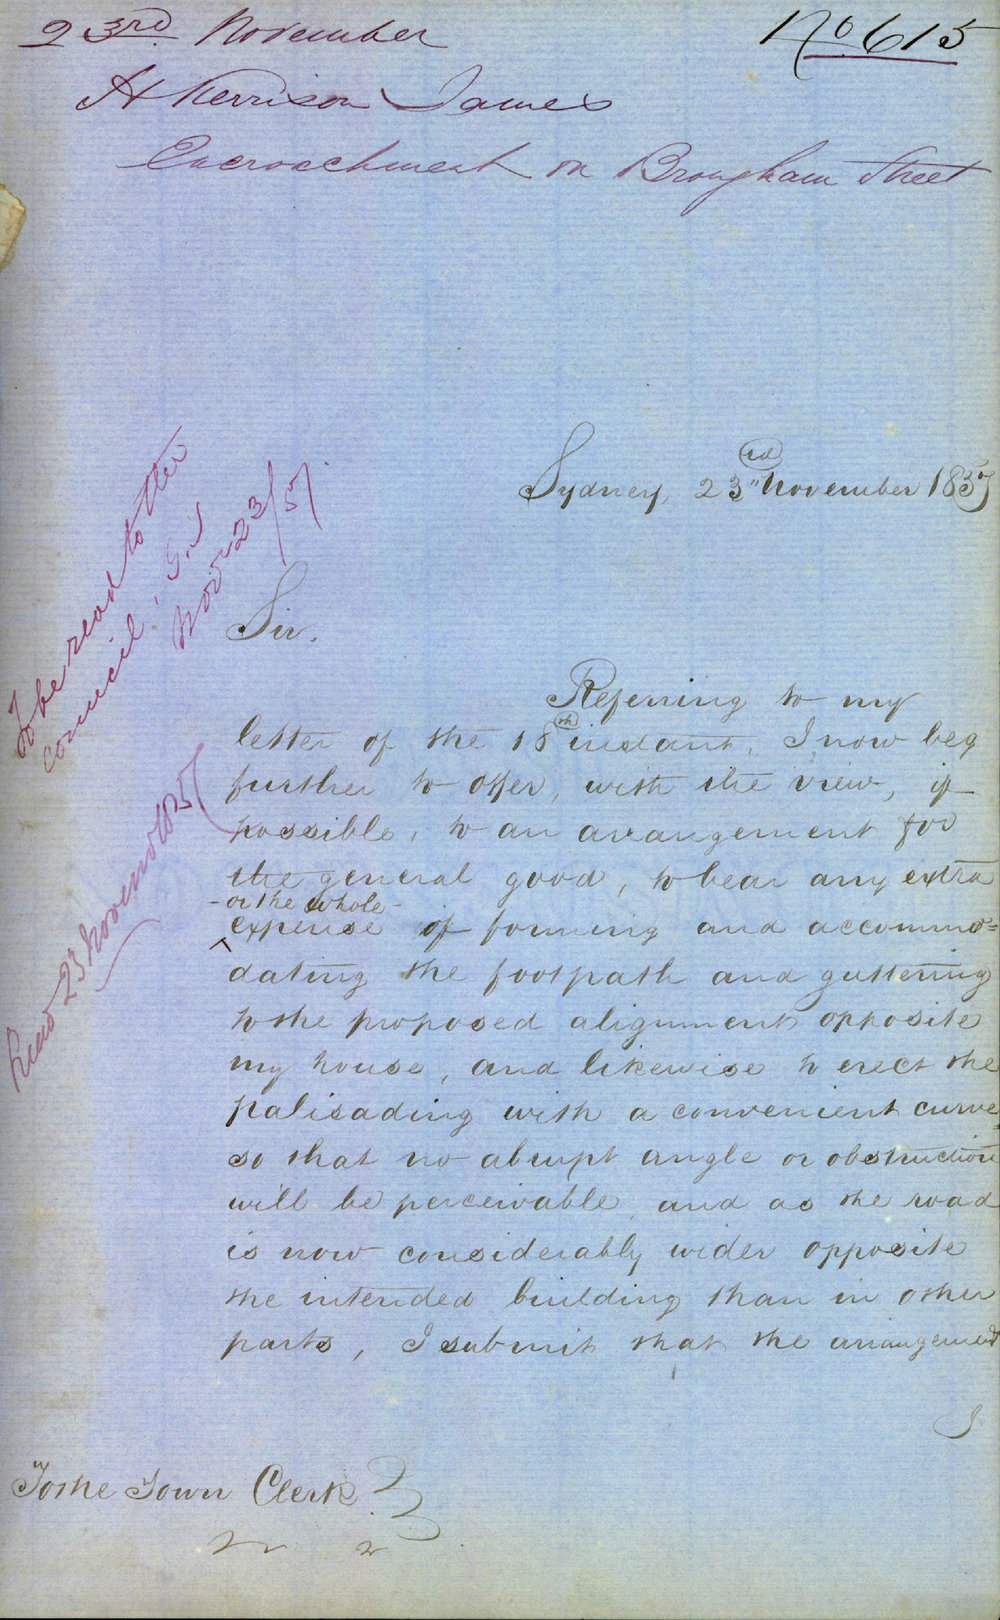 23rd November
No 615
H Kerrison James
Encroachment on Brougham Street
To be read to the
Council. G.S
Nov 23/57.
Sydney, 23rd November 1857
Sir,
Referring to my
letter of the 18th instant, I now beg
further to offer, with the view, if
possible, to an arrangement for
the general good, to bear any extra
- or the whole -
expense of forming and accommo=
dating the footpath and guttering
to the proposed alignment opposite
my house, and likewise to erect the
palisading with a convenient curve
so that no abrupt angle or obstruction
will be perceivable and as the road
is now considerably wider opposite
the intended building than in other
parts, I submit that the arrangement
I
To the Town Clerk
23 November